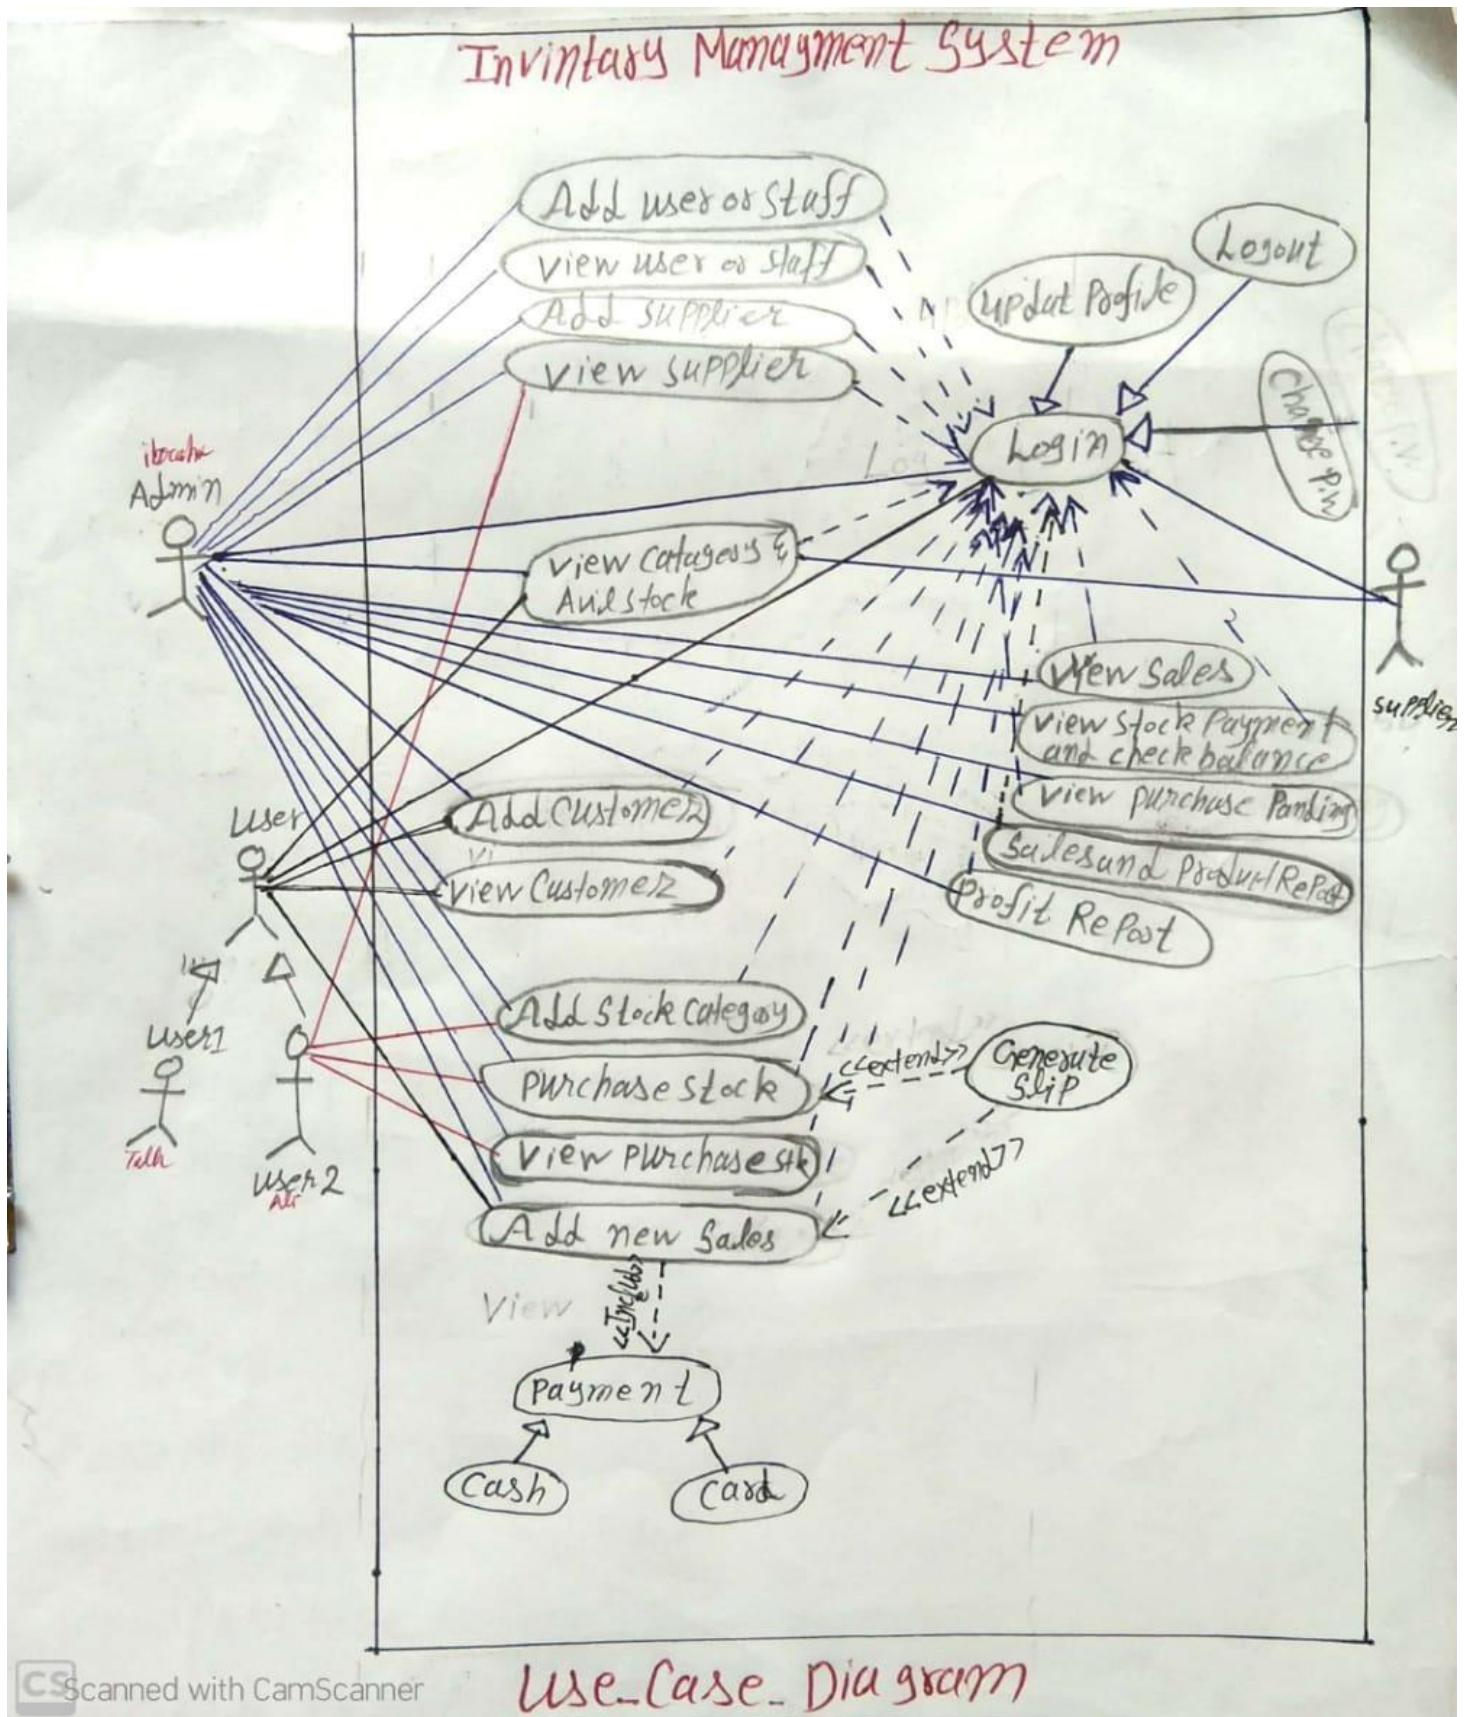 Invintary Managment System
Add user or Staff
View user or staff
Add supplier
View supplier
Logout
updat Profile
Change P.W
Login
Admin
View Catagory &
Avilstock
supplier
View Sales
View Stock Payment
and check balance
View purchase Panding
Sales and Product Repot
Profit Repost
User
Add Customer
View Customer
Add Stock Category
Purchase Stock
View purchase stk
Add new Sales
<<extend>>
Generate
Slip
<<extend>>
user1
user2
View
<<Includ>>
Payment
Cash
Card
CS Scanned with CamScanner
Use_Case_Diagram